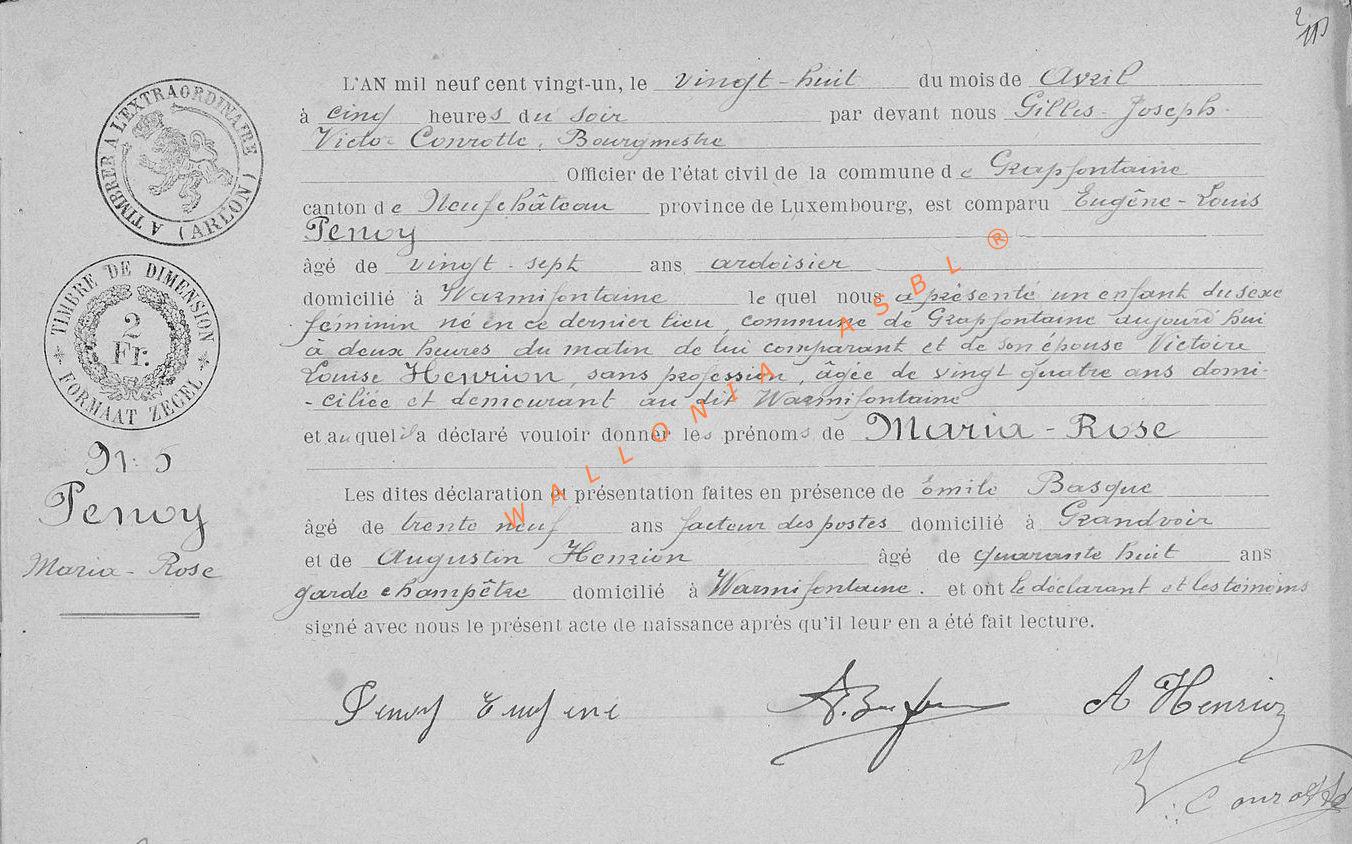 A TIMBRER A L'EXTRAORDINAIRE (ARLON)
TIMBRE DE DIMENSION
2
Fr.
FORMAAT ZEGEL
Nº 5
Penoy
Maria - Rose
L'AN mil neuf cent vingt-un, le vingt-huit du mois de Avril
à cinq heures du soir par devant nous Gilles-Joseph-
Victor Conrotte, Bourgmestre
Officier de l'état civil de la commune de Grapfontaine
canton de Neufchâteau province de Luxembourg, est comparu Eugêne-Louis
Penoy
âgé de vingt-sept ans ardoisier
domicilié à Warmifontaine le quel nous a présenté un enfant du sexe
féminin né en ce dernier lieu, commune de Grapfontaine aujourd'hui
à deux heures du matin de lui comparant et de son épouse Victoire
Louise Henrion, sans profession, âgée de vingt quatre ans domi-
-ciliée et demeurant au dit Warmifontaine
et auquel il a déclaré vouloir donner les prénoms de Maria-Rose
Les dites déclaration et présentation faites en présence de Emile Basque
âgé de trente neuf ans facteur des postes domicilié à Grandvoir
et de Augustin Henrion âgé de quarante huit ans
garde champêtre domicilié à Warmifontaine. et ont le déclarant et les témoins
signé avec nous le présent acte de naissance après qu'il leur en a été fait lecture.
Penoy Eugene A Henrion
V. Conrotte
WALLONIA ASBL ®